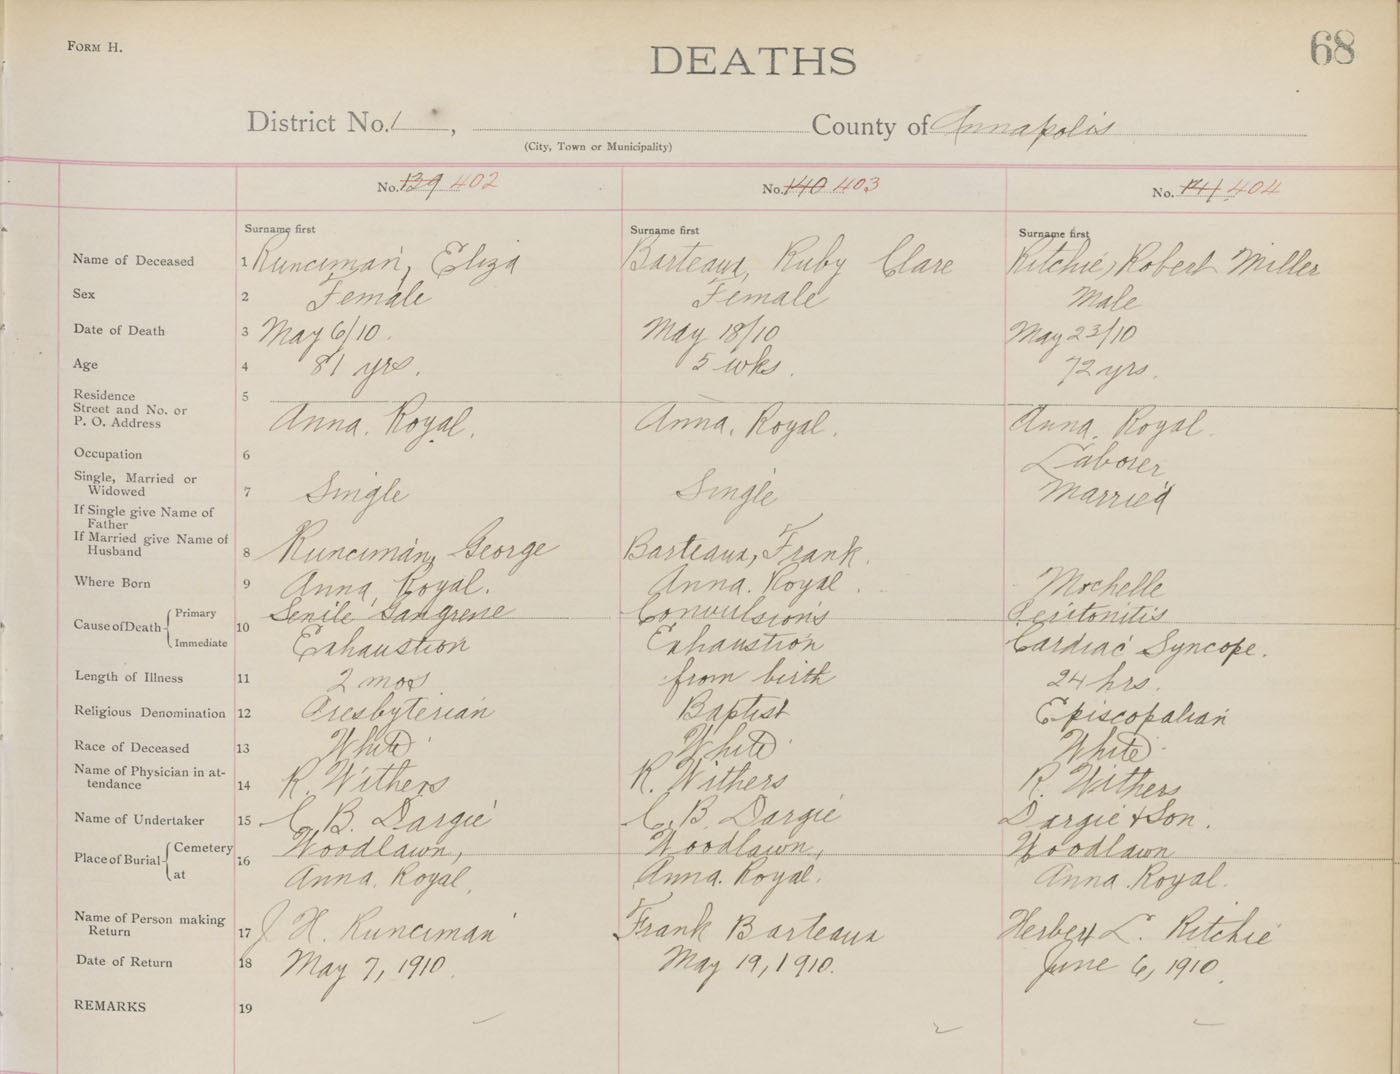 FORM H.
68
DEATHS
District No. 1 , County of Annapolis
(City, Town or Municipality)
No. 139 402 No. 140 403 No. 141 404
Surname first Surname first Surname first
Name of Deceased 1 Runciman, Eliza Barteaux, Ruby Clare Ritchie, Robert Miller
Sex 2 Female Female Male
Date of Death 3 May 6/10. May 18/10 May 23/10
Age 4 81 yrs. 5 wks. 72 yrs.
Residence 5
Street and No. or
P. O. Address Anna. Royal. Anna. Royal. Anna. Royal.
Occupation 6 Laborer
Single, Married or
Widowed 7 Single Single Married
If Single give Name of
Father
If Married give Name of
Husband 8 Runciman, George Barteaux, Frank.
Where Born 9 Anna. Royal. Anna. Royal. Mochelle
Cause of Death Primary Senile Gangrene Convulsions Peritonitis
10
Immediate Exhaustion Exhaustion Cardiac Syncope.
Length of Illness 11 2 mos from birth 24 hrs.
Religious Denomination 12 Presbyterian Baptist Episcopalian
Race of Deceased 13 White White White
Name of Physician in at-
tendance 14 R. Withers R. Withers R. Withers
Name of Undertaker 15 C. B. Dargie C. B. Dargie Dargie & Son.
Place of Burial Cemetery 16 Woodlawn, Woodlawn, Woodlawn
at Anna. Royal. Anna. Royal. Anna. Royal.
Name of Person making
Return 17 J. H. Runciman Frank Barteaux Herbert L. Ritchie
Date of Return 18 May 7, 1910. May 19, 1910. June 6, 1910.
REMARKS 19